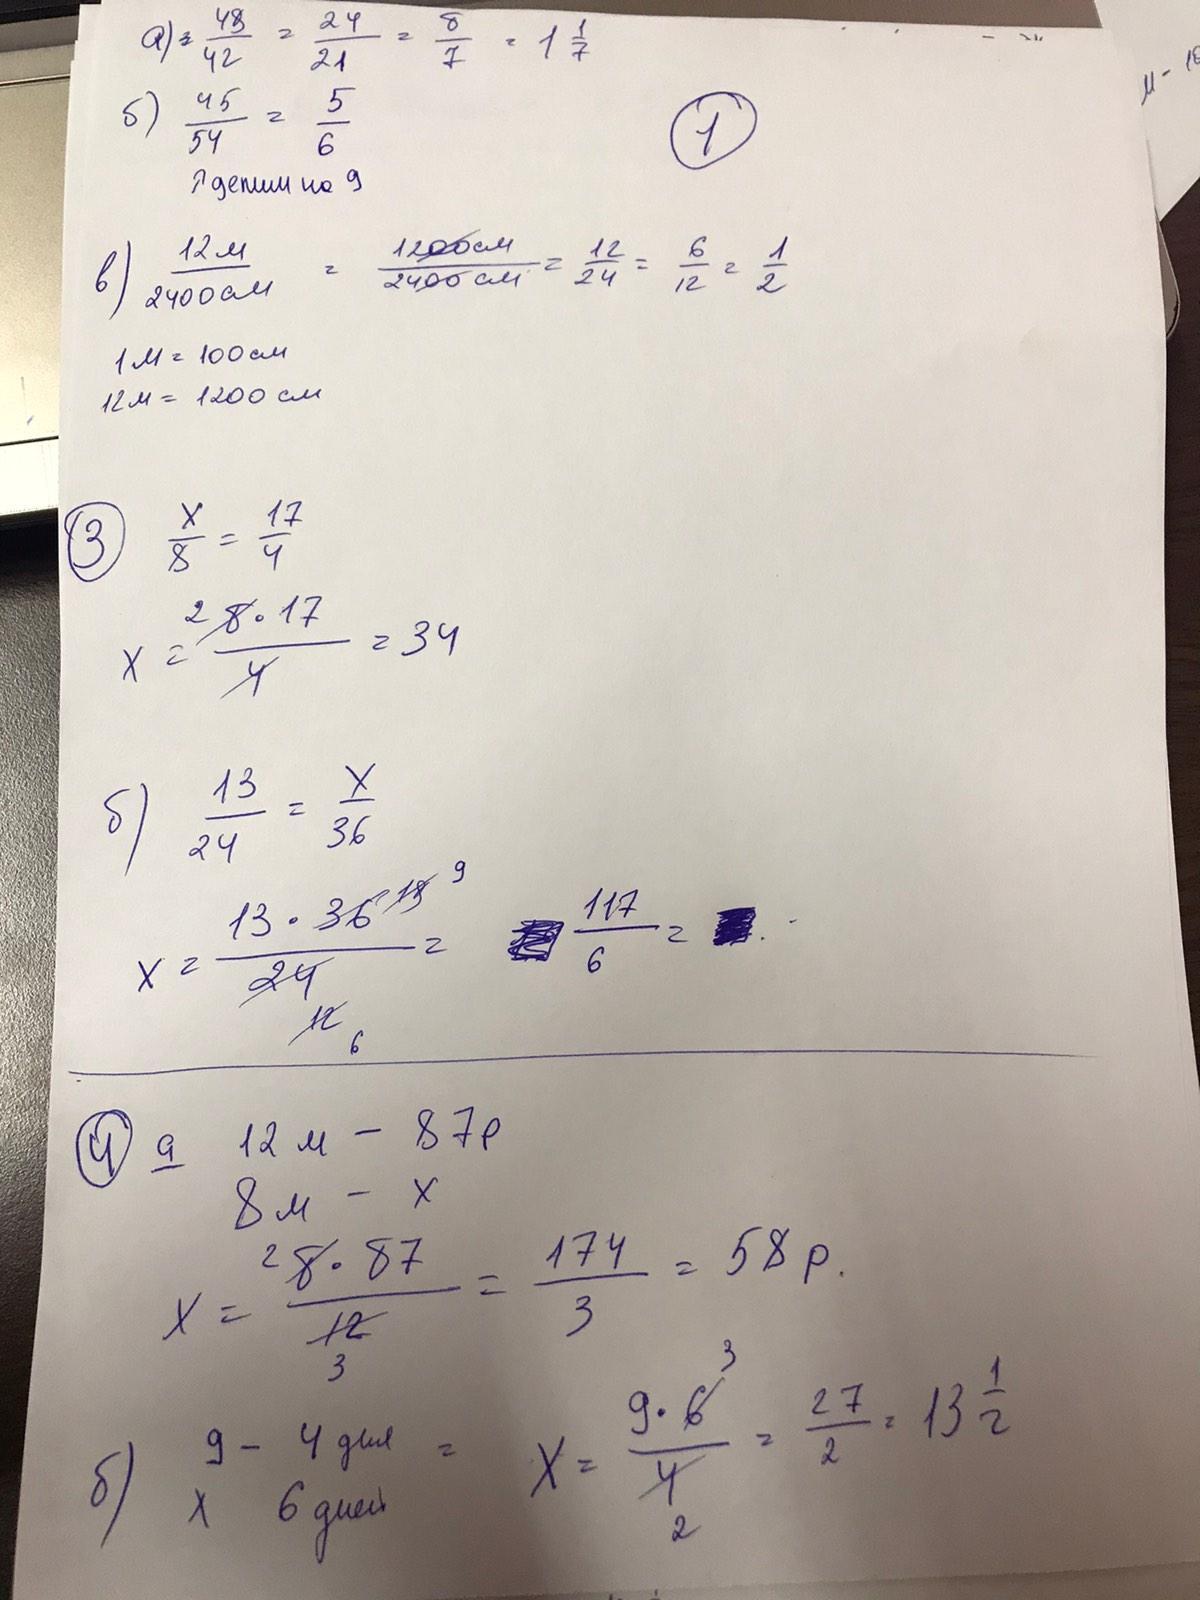 а) = 48/42 = 24/21 = 8/7 = 1 1/7
б) 45/54 = 5/6
↑ делим на 9
1
в) 12м/2400см = 1200см/2400см = 12/24 = 6/12 = 1/2
1м = 100см
12м = 1200см
3 x/8 = 17/4
x = 2 8·17/4 = 34
б) 13/24 = x/36
x = 13·36 18 9/24 12 6 = 117/6 =
4 а 12м – 87р
8м – x
x = 2 8·87/12 3 = 174/3 = 58р.
б) 9 – 4 дня = x = 9·6 3/4 2 = 27/2 = 13 1/2
x 6 дней